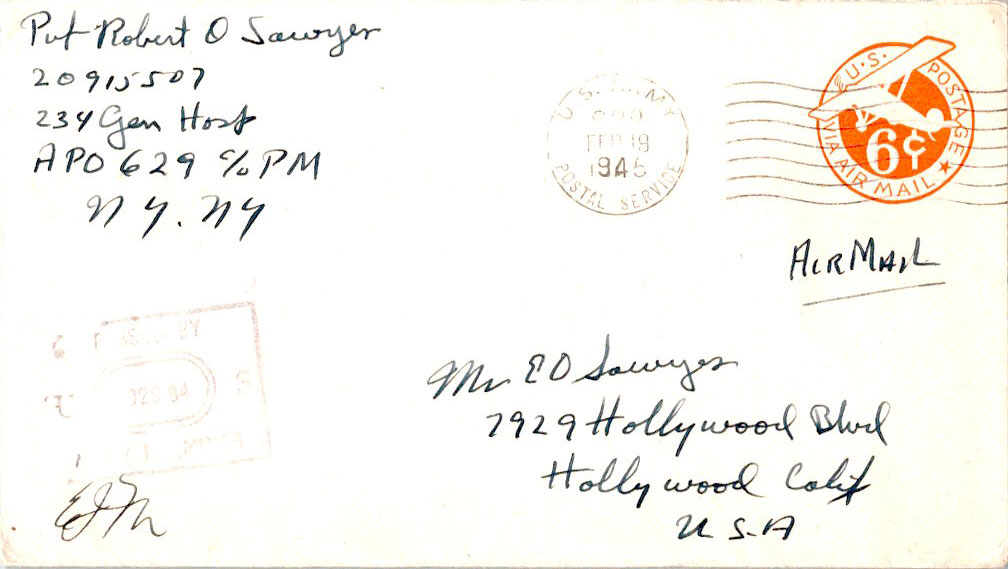 Pvt Robert O Sawyer
20915507
234 Gen Hosp
APO 629 c/o PM
N Y. NY
U.S. ARMY
FEB 19
1945
POSTAL SERVICE
U.S. POSTAGE
6¢
VIA AIR MAIL
AIR MAIL
PASSED BY
U.S.
ARMY EXAMINER
Mr E O Sawyer
7929 Hollywood Blvd
Hollywood Calif
U S.A